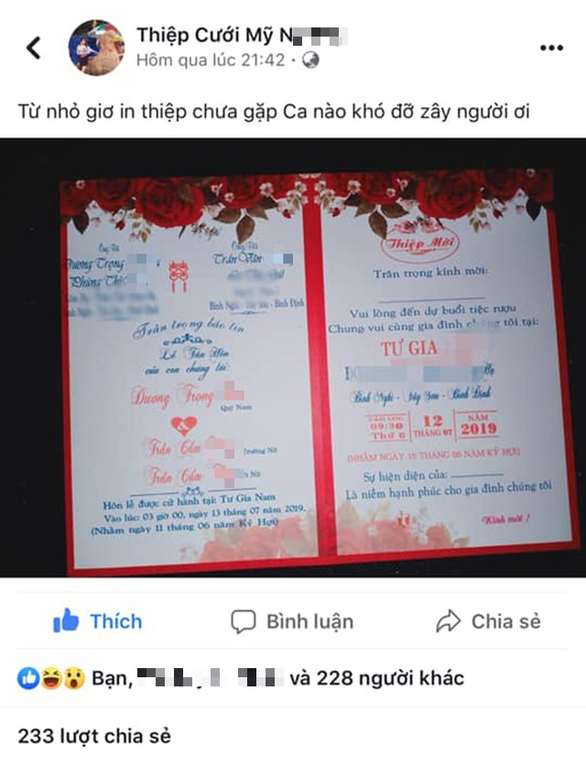 Thiệp Cưới Mỹ N
Hôm qua lúc 21:42 ·
Từ nhỏ giơ in thiệp chưa gặp Ca nào khó đỡ zây người ơi
Ông Bà
Dương Trọng
Phùng Thị
Ông Bà
Trần Văn
Bình Nghi - Tây Sơn - Bình Định
Trân trọng báo tin
Lễ Tân Hôn
của con chúng tôi:
Dương Trọng
Quý Nam
Trần Cẩm
Trưởng Nữ
Trần Cẩm
Nữ
Hôn lễ được cử hành tại: Tư Gia Nam
Vào lúc: 03 giờ 00, ngày 13 tháng 07 năm 2019.
(Nhằm ngày 11 tháng 06 năm Kỷ Hợi)
Thiệp Mời
Trân trọng kính mời:
Vui lòng đến dự buổi tiệc rượu
Chung vui cùng gia đình chúng tôi tại:
TƯ GIA
Bình Nghi - Tây Sơn - Bình Định
VÀO LÚC
09:30
Thứ 6
12
THÁNG 07
NĂM
2019
(NHẰM NGÀY 10 THÁNG 06 NĂM KỶ HỢI)
Sự hiện diện của:
Là niềm hạnh phúc cho gia đình chúng tôi
Kính mời !
Thích
Bình luận
Chia sẻ
Bạn, và 228 người khác
233 lượt chia sẻ